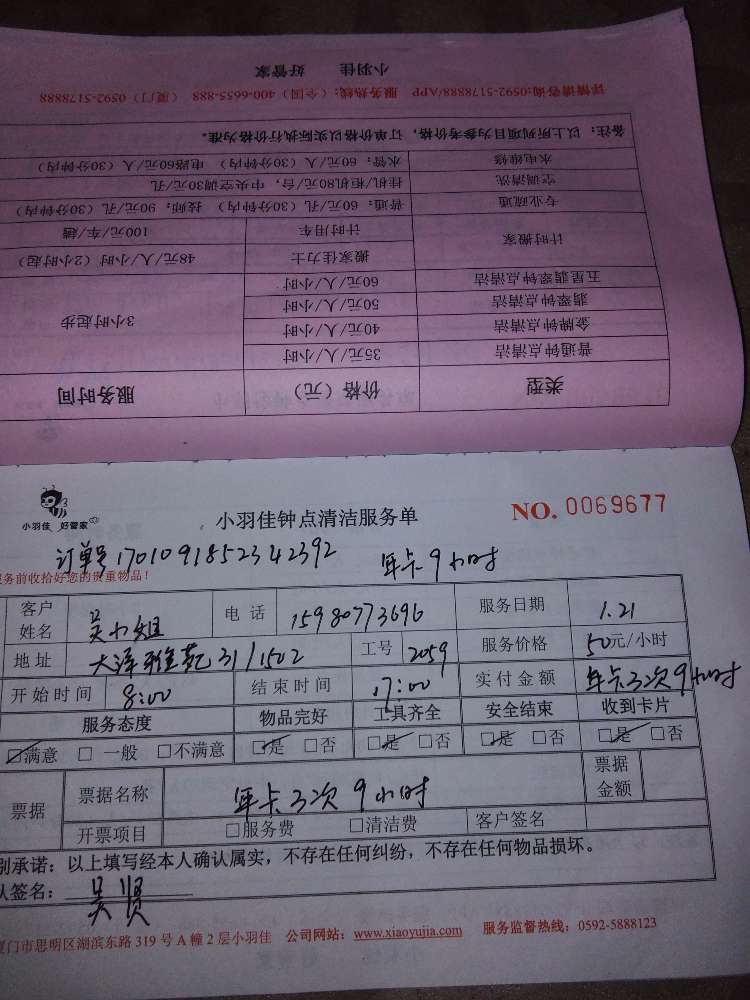 小羽佳 好管家
详情请咨询:0592-5178888/APP 服务热线:(全国)400-6655-888 (厦门)0592-5178888
备注:以上所列项目为参考价格,订单价格以实际执行价格为准。
水电维修 水管:60元/人(30分钟内) 电路60元/人(30分钟内)
空调清洗 挂机/柜机80元/台,中央空调30元/孔
专业疏通 普通:60元/孔(30分钟内) 技师:90元/孔(30分钟内)
计时搬家 计时用车 100元/车/趟
搬家佳力士 48元/人/小时(2小时起)
五星翡翠钟点清洁 60元/人/小时 3小时起步
翡翠钟点清洁 50元/人/小时
金牌钟点清洁 40元/人/小时
普通钟点清洁 35元/人/小时
类型 价格(元) 服务时间
小羽佳 好管家
小羽佳钟点清洁服务单 NO. 0069677
订单号1701091852342392 年卡9小时
务前收拾好您的贵重物品!
客户姓名 吴小姐 电话 15980773696 服务日期 1.21
地址 大泽雅苑31/1502 工号 2059 服务价格 50元/小时
开始时间 8:00 结束时间 17:00 实付金额 年卡3次9小时
服务态度 物品完好 工具齐全 安全结束 收到卡片
☑满意 □一般 □不满意 ☑是 □否 ☑是 □否 ☑是 □否 ☑是 □否
票据 票据名称 年卡3次9小时 票据金额
开票项目 □服务费 □清洁费 客户签名
别承诺:以上填写经本人确认属实,不存在任何纠纷,不存在任何物品损坏。
人签名: 吴贤
厦门市思明区湖滨东路319号A幢2层小羽佳 公司网站:www.xiaoyujia.com 服务监督热线:0592-5888123